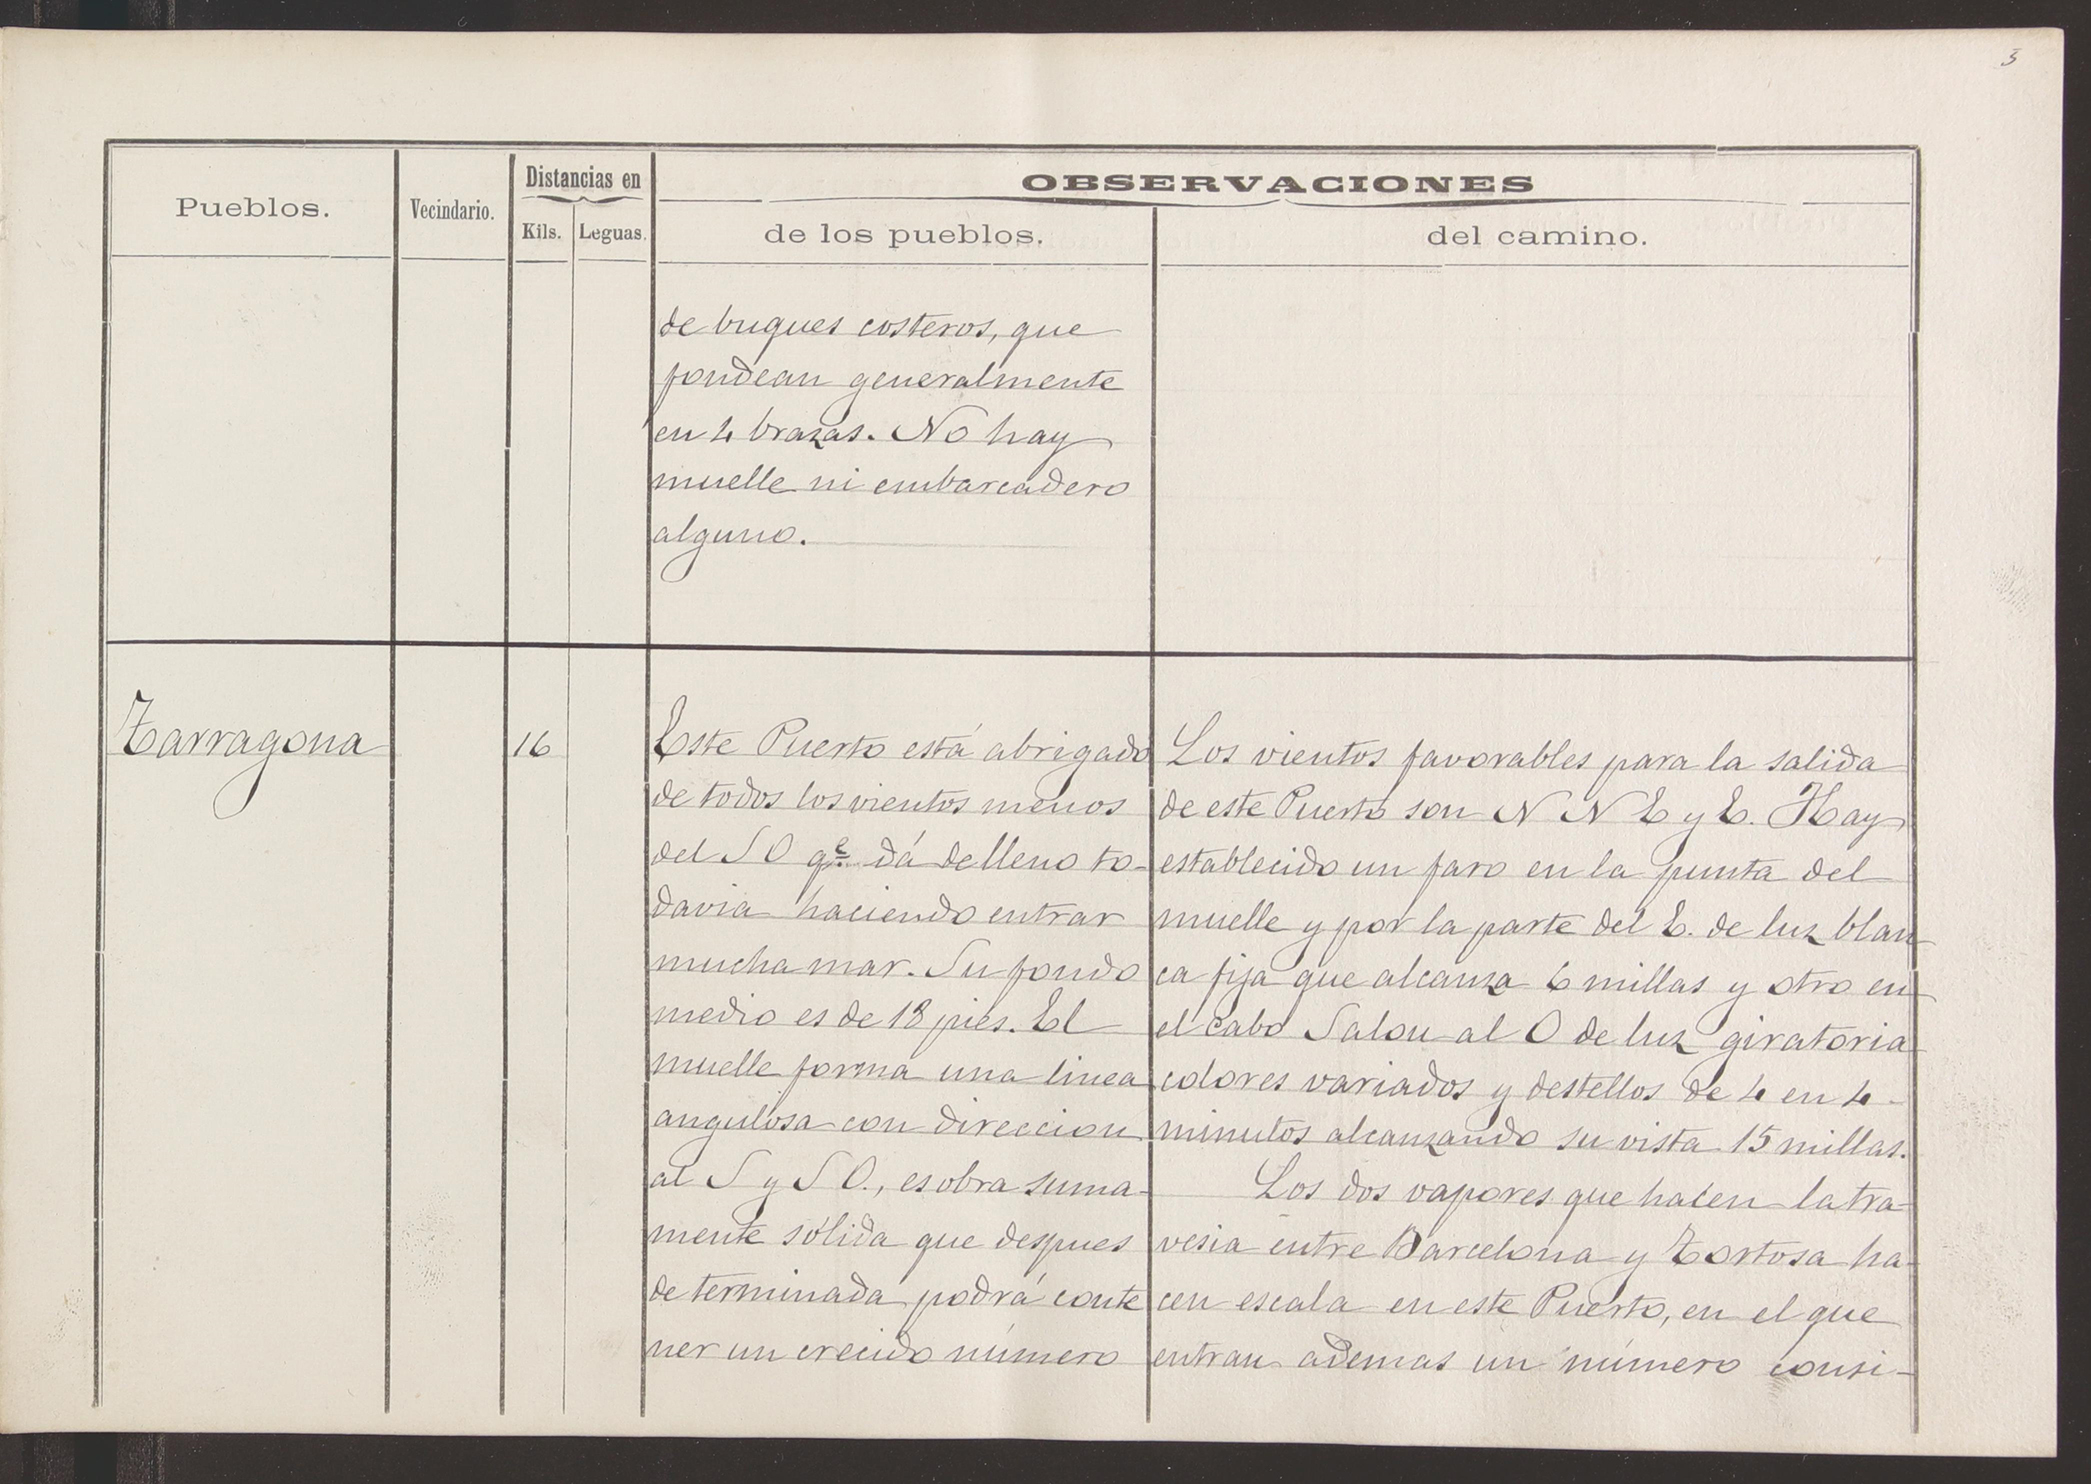 3
Pueblos.
Vecindario.
Distancias en
Kils.
Leguas.
OBSERVACIONES
de los pueblos.
del camino.
de buques costeros, que
fondean generalmente
en 4 brazas. No hay
muelle ni embarcadero
alguno.
Tarragona
16
Este Puerto está abrigado
de todos los vientos menos
del S O qe dá de lleno to-
davia haciendo entrar
mucha mar. Su fondo
medio es de 18 pies. El
muelle forma una linea
angulosa con direccion
al S y S O., es obra suma-
mente sólida que despues
de terminada podrá conte
ner un crecido número
Los vientos favorables para la salida
de este Puerto son N N E y E. Hay
establecido un faro en la punta del
muelle y por la parte del E. de luz blan
ca fija que alcanza 6 millas y otro en
el cabo Salou al O de luz giratoria
colores variados y destellos de 4 en 4
minutos alcanzando su vista 15 millas.
Los dos vapores que hacen la tra-
vesia entre Barcelona y Tortosa ha-
cen escala en este Puerto, en el que
entran ademas un número consi-